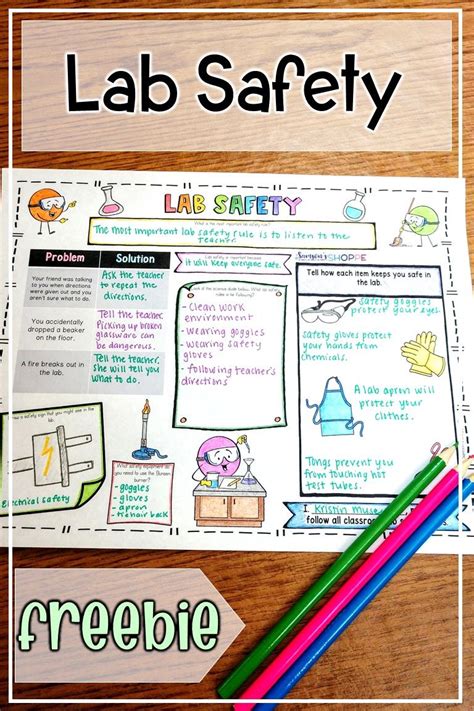 Lab Safety
LAB SAFETY
What is the most important lab safety rule?
The most important lab safety rule is to listen to the
teacher.
Problem
Solution
Your friend was talking
to you when directions
were given out and you
aren't sure what to do.
Ask the teacher
to repeat the
directions.
You accidentally
dropped a beaker
on the floor.
Tell the teacher.
Picking up broken
glassware can
be dangerous.
A fire breaks out in the
lab.
Tell the teacher,
she will tell you
what to do.
Lab safety is important because
it will keep everyone safe.
- clean work
environment
- wearing goggles
- wearing safety
gloves
- following teacher's
directions
SHOPPE
Tell how each item keeps you safe in
the lab.
safety goggles
protect your eyes.
safety gloves protect
your hands from
chemicals.
A lab apron will
protect your
clothes.
Tongs prevent you
from touching hot
test tubes.
a safety sign that you might see in the
lab.
Electrical safety
What safety equipment do
you need to use the Bunsen
burner?
- goggles
- gloves
- apron
- tie hair back
I, Kristin Muse
follow all classroom
freebie